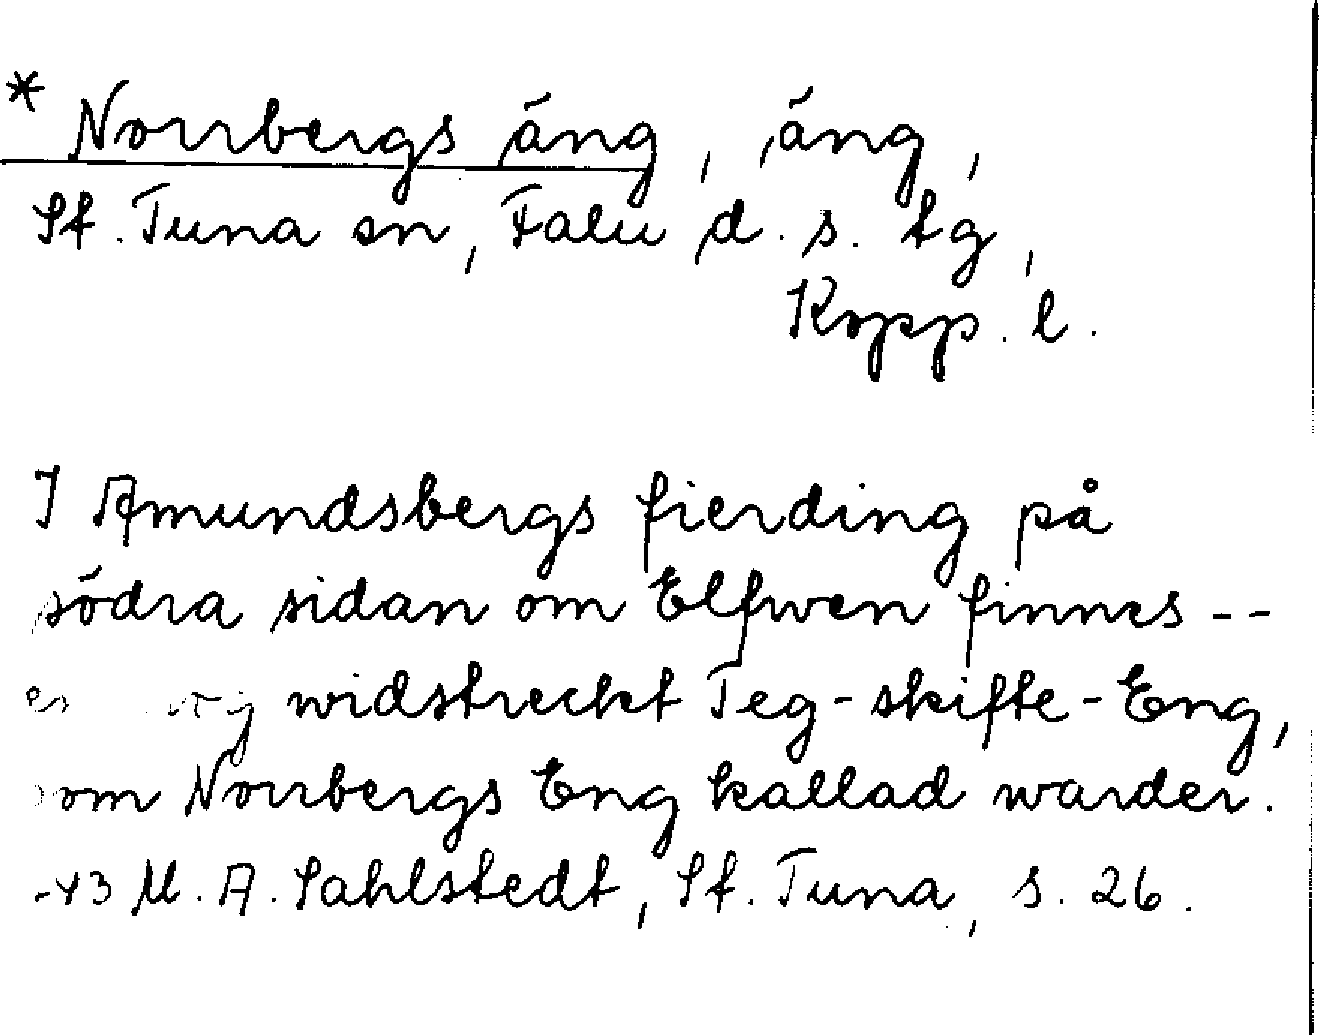 * Norrbergs äng, äng,
St. Tuna sn, Falu d. s. tg,
Kopp. l.
I Amundsbergs fierding på
södra sidan om Elfwen finnes --
widstreckt Teg-skifte-Eng,
om Norrbergs Eng kallad warder.
-43 M. A. Sahlstedt, St. Tuna, s. 26.